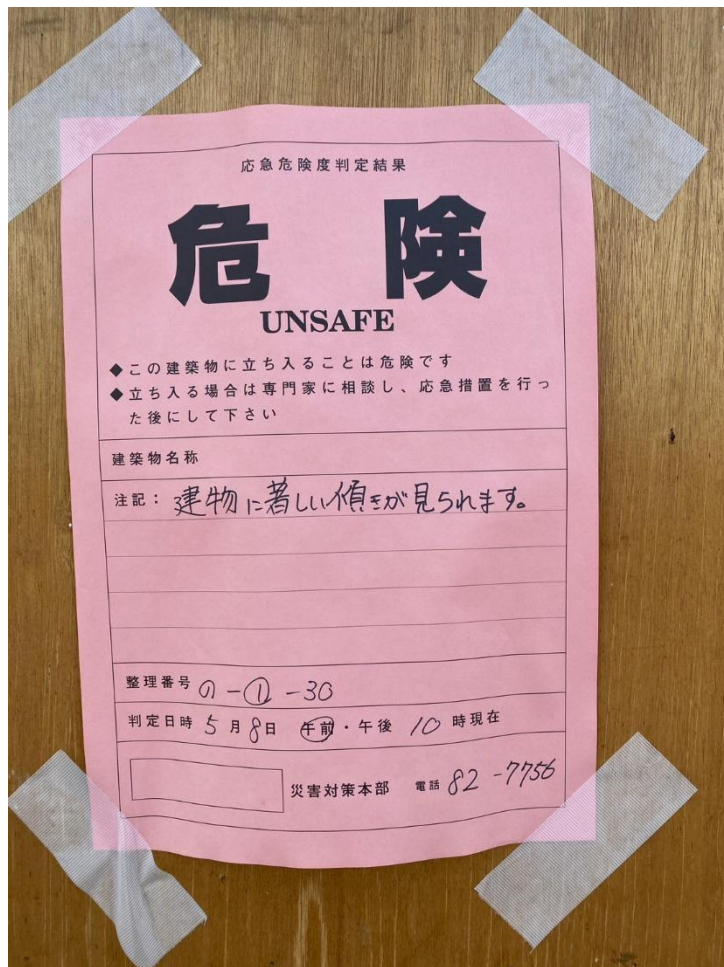 応急危険度判定結果
危 険
UNSAFE
◆この建築物に立ち入ることは危険です
◆立ち入る場合は専門家に相談し、応急措置を行っ
た後にして下さい
建築物名称
注記：建物に著しい傾きが見られます。
整理番号 の-①-30
判定日時 5月8日 午前・午後 10時現在
災害対策本部 電話 82-7756